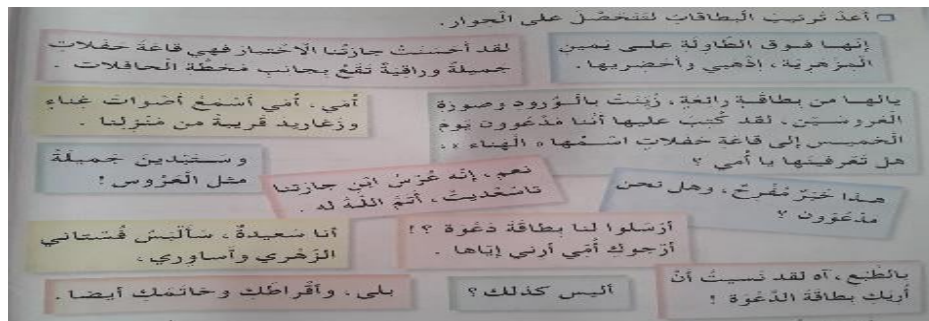 أعدْ تَرتيبَ الْبطاقاتِ لتَتَحَصَّلَ على الْحِوار.
إنّها فوق الطّاولَةِ علـى يَمينِ
الْمِزهريّة، إذْهبي وأحْضريها.
لقد أحْسَنتْ جارتُنا الْاختيارَ فهي قاعَةُ حفَلاتٍ
جَميلَةٌ وراقيَةٌ تَقَعُ بجانبِ مَحَطّةِ الْحافلات.
يالهـا من بِطاقَـةٍ رائعَةٍ، زُيِّنَتْ بالْـوُرودِ وصورَةِ
العَروسَيْنِ، لقد كُتِبَ عليها أنّنا مَدْعوون يَومَ
الْخميـسِ إلى قاعَةِ حَفلاتٍ اسْـمُها « الْهناء »،
هل تَعرفينَها يا أمي ؟
أمّي، أمّي أسْمَعُ أصْواتَ غِناءٍ
وزغاريدَ قَريبةً من مَنْزِلِنا.
وسَـتَبْدينَ جَميلَةً
مثل الْعَرُوسِ !
نعم، إنّه عُرْسُ ابْنِ جارتنا
تاسَعْديتْ، أتَمَّ اللّهُ له.
هـذا خَبَرٌ مُفْرِحٌ، وهل نحن
مدْعَوون ؟
أرْسَلوا لنا بطاقَةَ دَعْوة ؟!
أرْجوكِ أمّي أرني إيّاها.
أنا سَعيدةٌ، سَألْبَسُ فُسْتاني
الزّهْري وأساوِري،
بالطّبع، آه لقد نَسيتُ أنْ
أُريَكِ بطاقَةَ الدّعْوَة !
أليس كذلك ؟
بلى، وأقْراطَكِ وخاتَمَكِ أيضا.